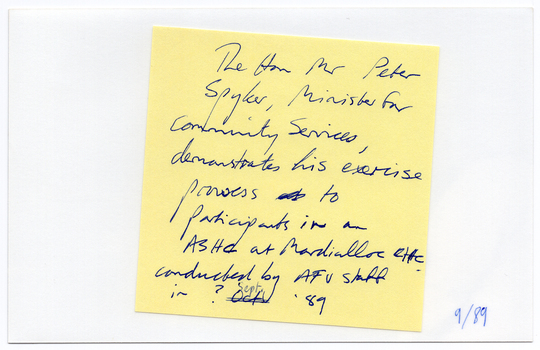 The Hon Mr Peter
Spyker, Minister for
Community Services,
demonstrates his exercise
prowess to
participants in an
at Mordialloc
conducted by staff
in ? Sept. '89
9/89